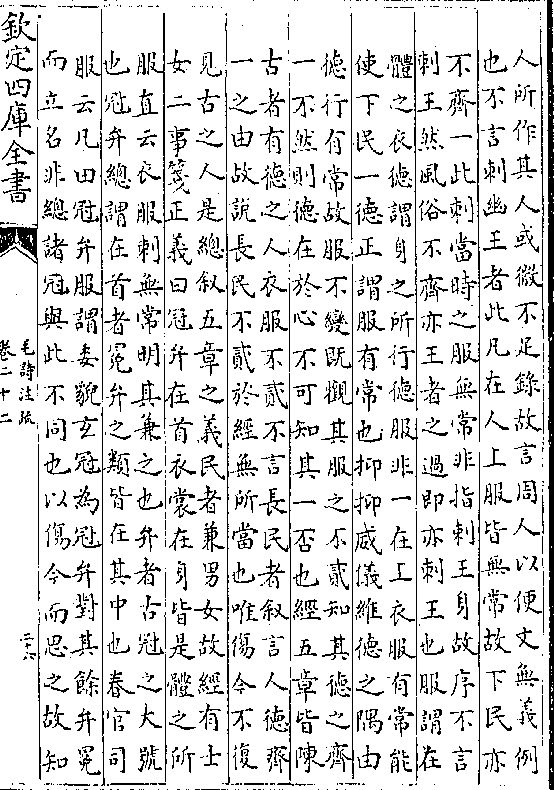 人所作其人或微不足錄故言周人以便文無義例
也不言刺幽王者此凡在人上服皆無常故下民亦
不齊一此刺當時之服無常非指刺王身故序不言
刺王然風俗不齊亦王者之過即亦刺王也服謂在
體之衣德謂身之所行德服非一在上衣服有常能
使下民一德正謂服有常也抑抑威儀維德之隅由
德行有常故服不變既觀其服之不貳知其德之齊
一不然則德在於心不可知其一否也經五章皆陳
古者有德之人衣服不貳不言長民者叙言人德齊
一之由故說長民不貳於經無所當也唯傷今不復
見古之人是總叙五章之義民者兼男女故經有士
女二事箋正義曰冠弁在首衣裳在身皆是體之所
服直云衣服刺無常明其兼之也弁者古冠之大號
也冠弁總謂在首者冕弁之類皆在其中也春官司
服云凡田冠弁服謂委貌玄冠為冠弁對其餘弁冕
而立名非總諸冠與此不同也以傷今而思之故知
欽定四庫全書
毛詩注疏
卷二十二
三六